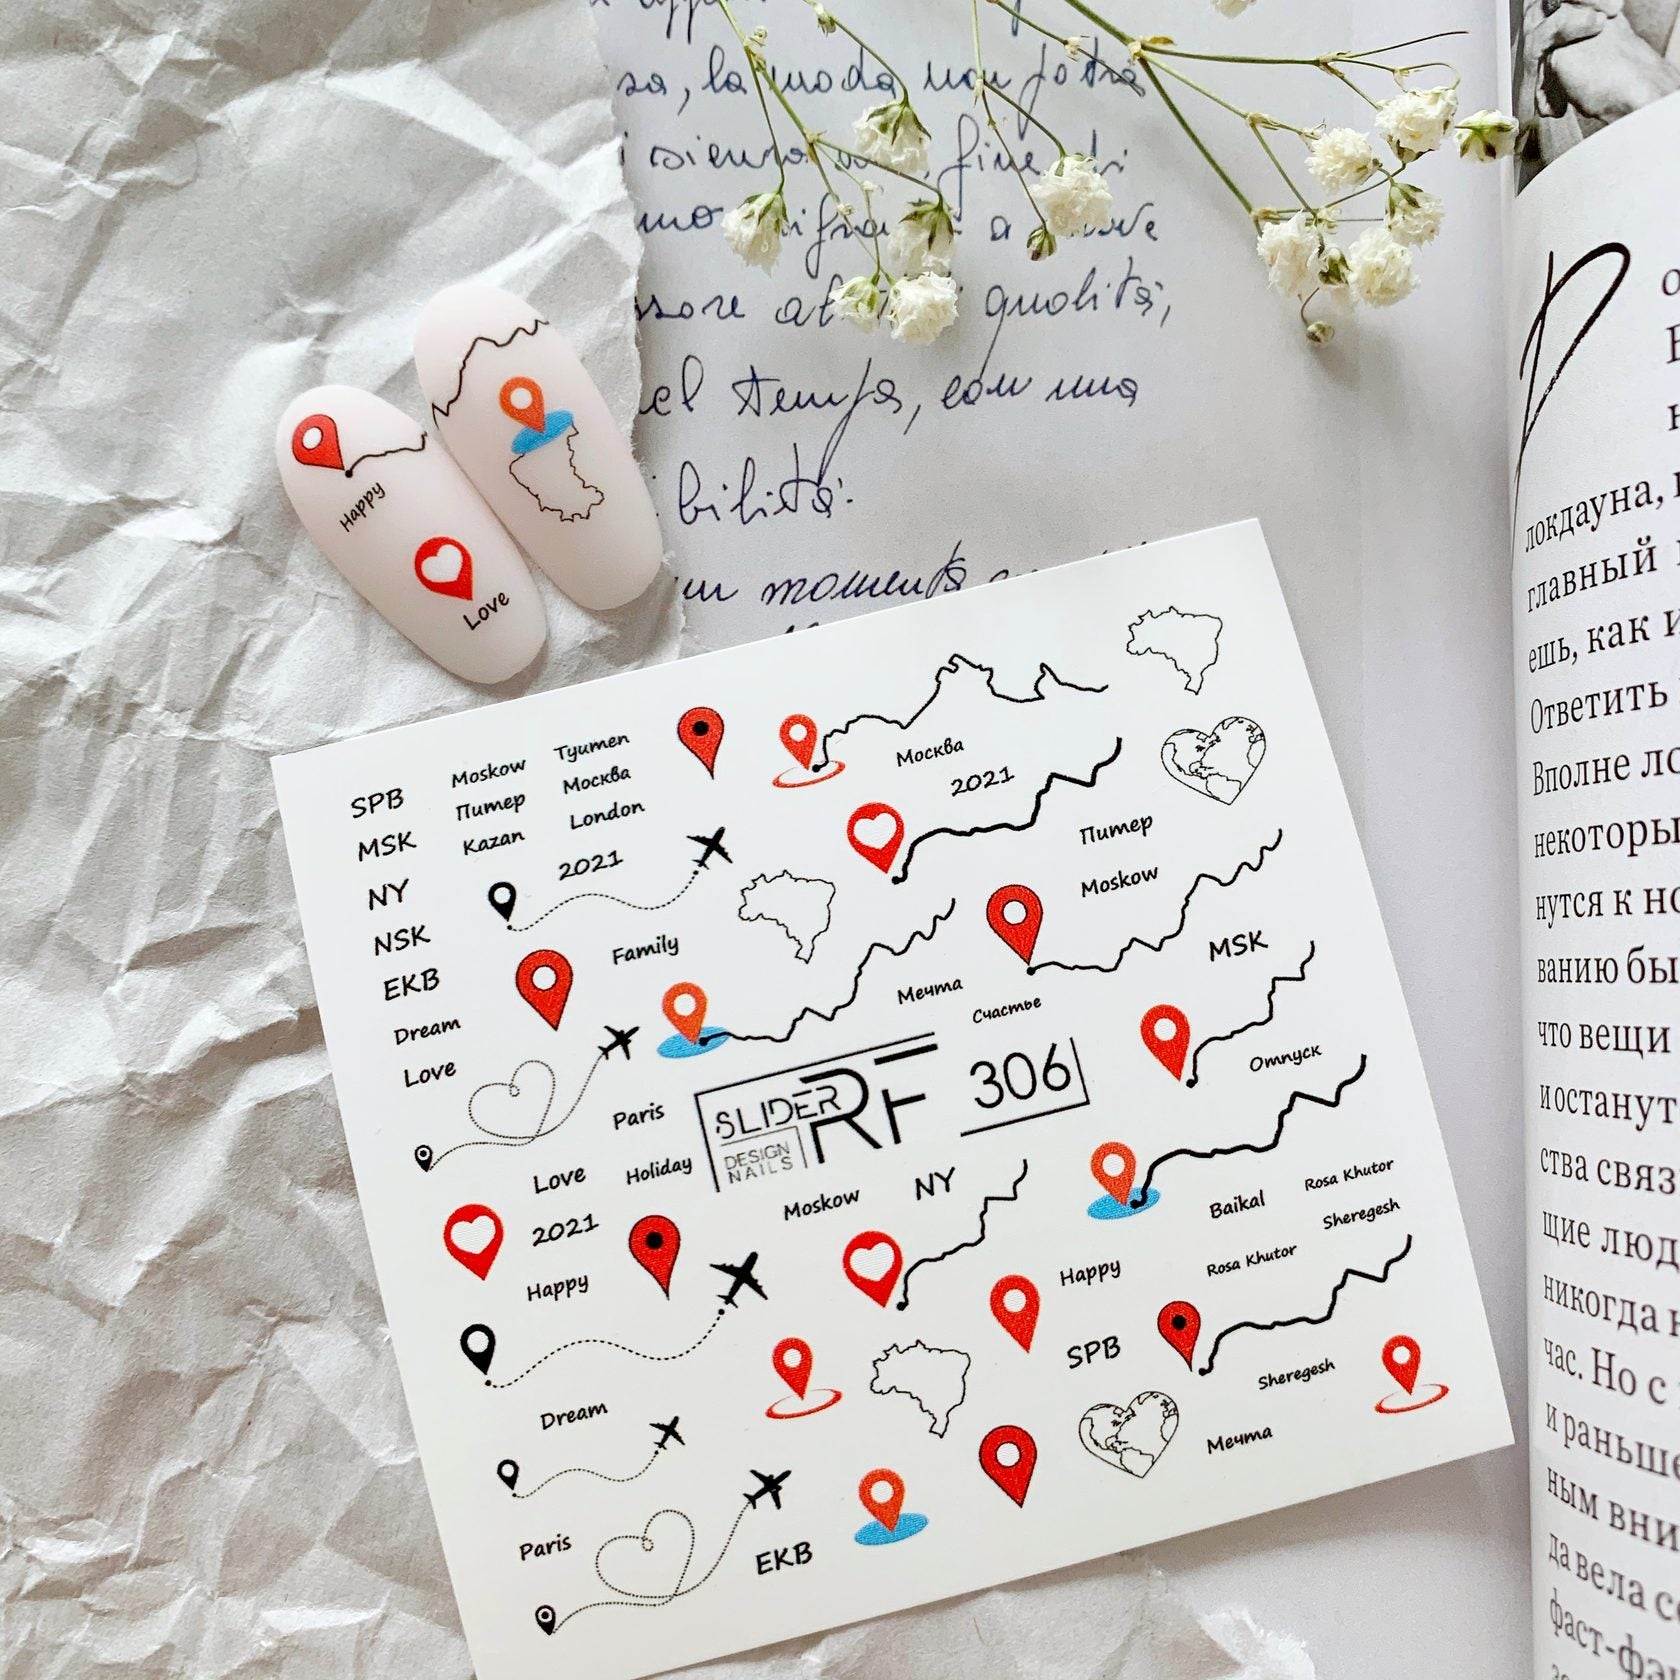 sa, la moda non potrà
fine di
qualità,
del tempo, con una
bilità:
momento
Happy
Love
SPB
MSK
NY
NSK
EKB
Dream
Love
Moskow
Питер
Kazan
Tyumen
Москва
London
2021
Family
Paris
Love
Holiday
2021
Happy
Dream
Paris
EKB
Москва
2021
Питер
Moskow
MSK
Мечта
Счастье
Отпуск
SLIDER RF 306
DESIGN
NAILS
Moskow
NY
Baikal
Rosa Khutor
Sheregesh
Rosa Khutor
Happy
SPB
Sheregesh
Мечта
локдауна,
главный
ешь, как и
Ответить
Вполне
некоторы
нутся к
ванию бы
что вещи
и останут
ства связ
щие люд
никогда
час. Но с
и раньше
ным вни
да вела
фаст-фэ